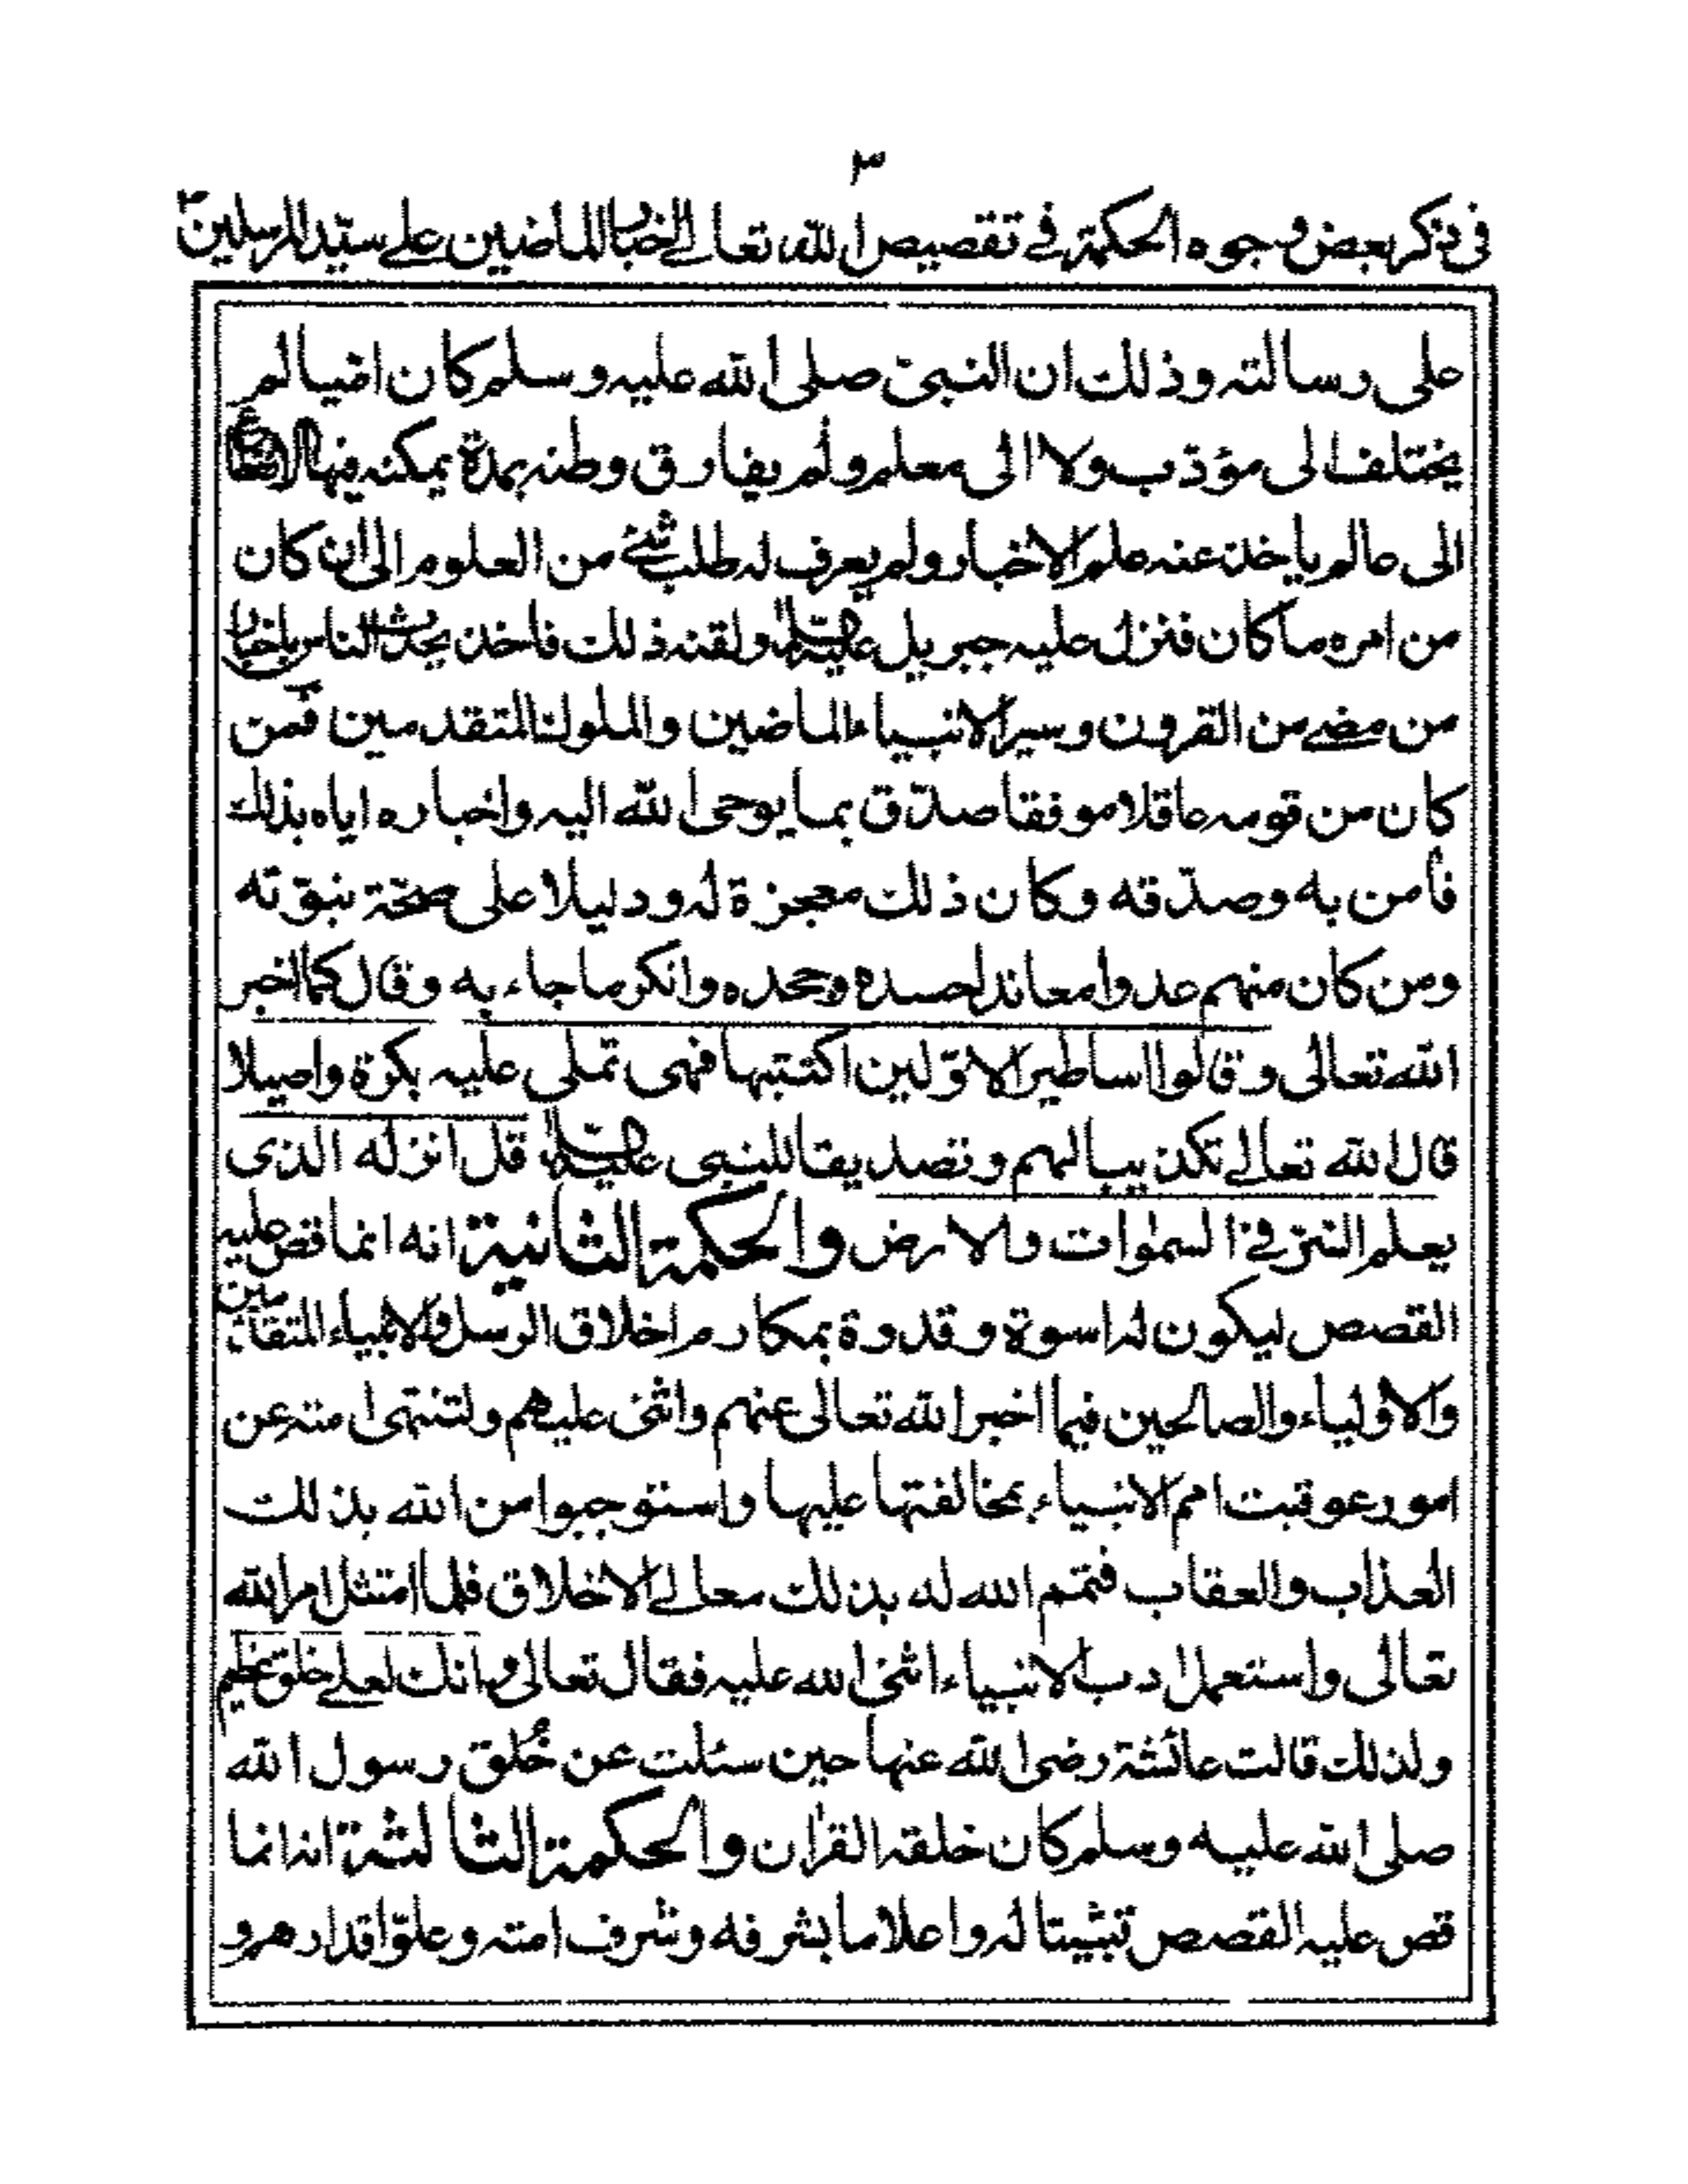 ٣
فى ذكر بعض وجوه الحكمة فے تقصيص الله تعالے اخبار الماضين علے سيّد المرسلين
على رسالته وذلك ان النبىّ صلى الله عليه وسلم كان اميا لم
يختلف الى مؤدب ولا الى معلم ولم يفارق وطنه بمدة يمكنه فيها
الى عالم ياخذ عنه علم الاخبار ولم يعرف له طلب شئے من العلوم الى ان كان
من امره ما كان فنزل عليه جبريل عليه السلام ولقنه ذلك فاخذ يحدث الناس باخبار
من مضے من القرون وسير الانبياء الماضين والملوك المتقدمين فمن
كان من قومه عاقلا موفقا صدّق بما يوحى الله اليه واخباره اياه بذلك
فأمن به وصدّقه وكان ذلك معجزة له ودليلا على صحّة نبوّته
ومن كان منهم عدوا معاندا حسده وجحده وانكر ما جاء به وقال كما اخبر
الله تعالى وقالوا اساطير الاوّلين اكتتبها فهى تملى عليه بكرة واصيلا
قال الله تعالے تكذيبا لهم وتصديقا للنبى عليه السلام قل انزله الذى
يعلم السّرّ فے السمٰوات والارض والحكمة الثانية انه انما قص عليه
القصص ليكون له اسوة وقدوة بمكارم اخلاق الرسل والانبياء المتقدمين
والاولياء والصالحين فيما اخبر الله تعالى عنهم واثنى عليهم ولتنتهى امته عن
امور عوقبت امم الانبياء بمخالفتها عليها واستوجبوا من الله بذلك
العذاب والعقاب فتمم الله له بذلك معالے الاخلاق فلما امتثل امر الله
تعالى واستعمل ادب الانبياء اثنى الله عليه فقال تعالى وانك لعلے خلق عظيم
ولذلك قالت عائشة رضى الله عنها حين سئلت عن خُلق رسول الله
صلى الله عليه وسلم كان خلقه القرأن والحكمة الثالثة انه انما
قص عليه القصص تثبيتا له واعلاما بشرفه وشرف امته وعلوّ اقدارهم و